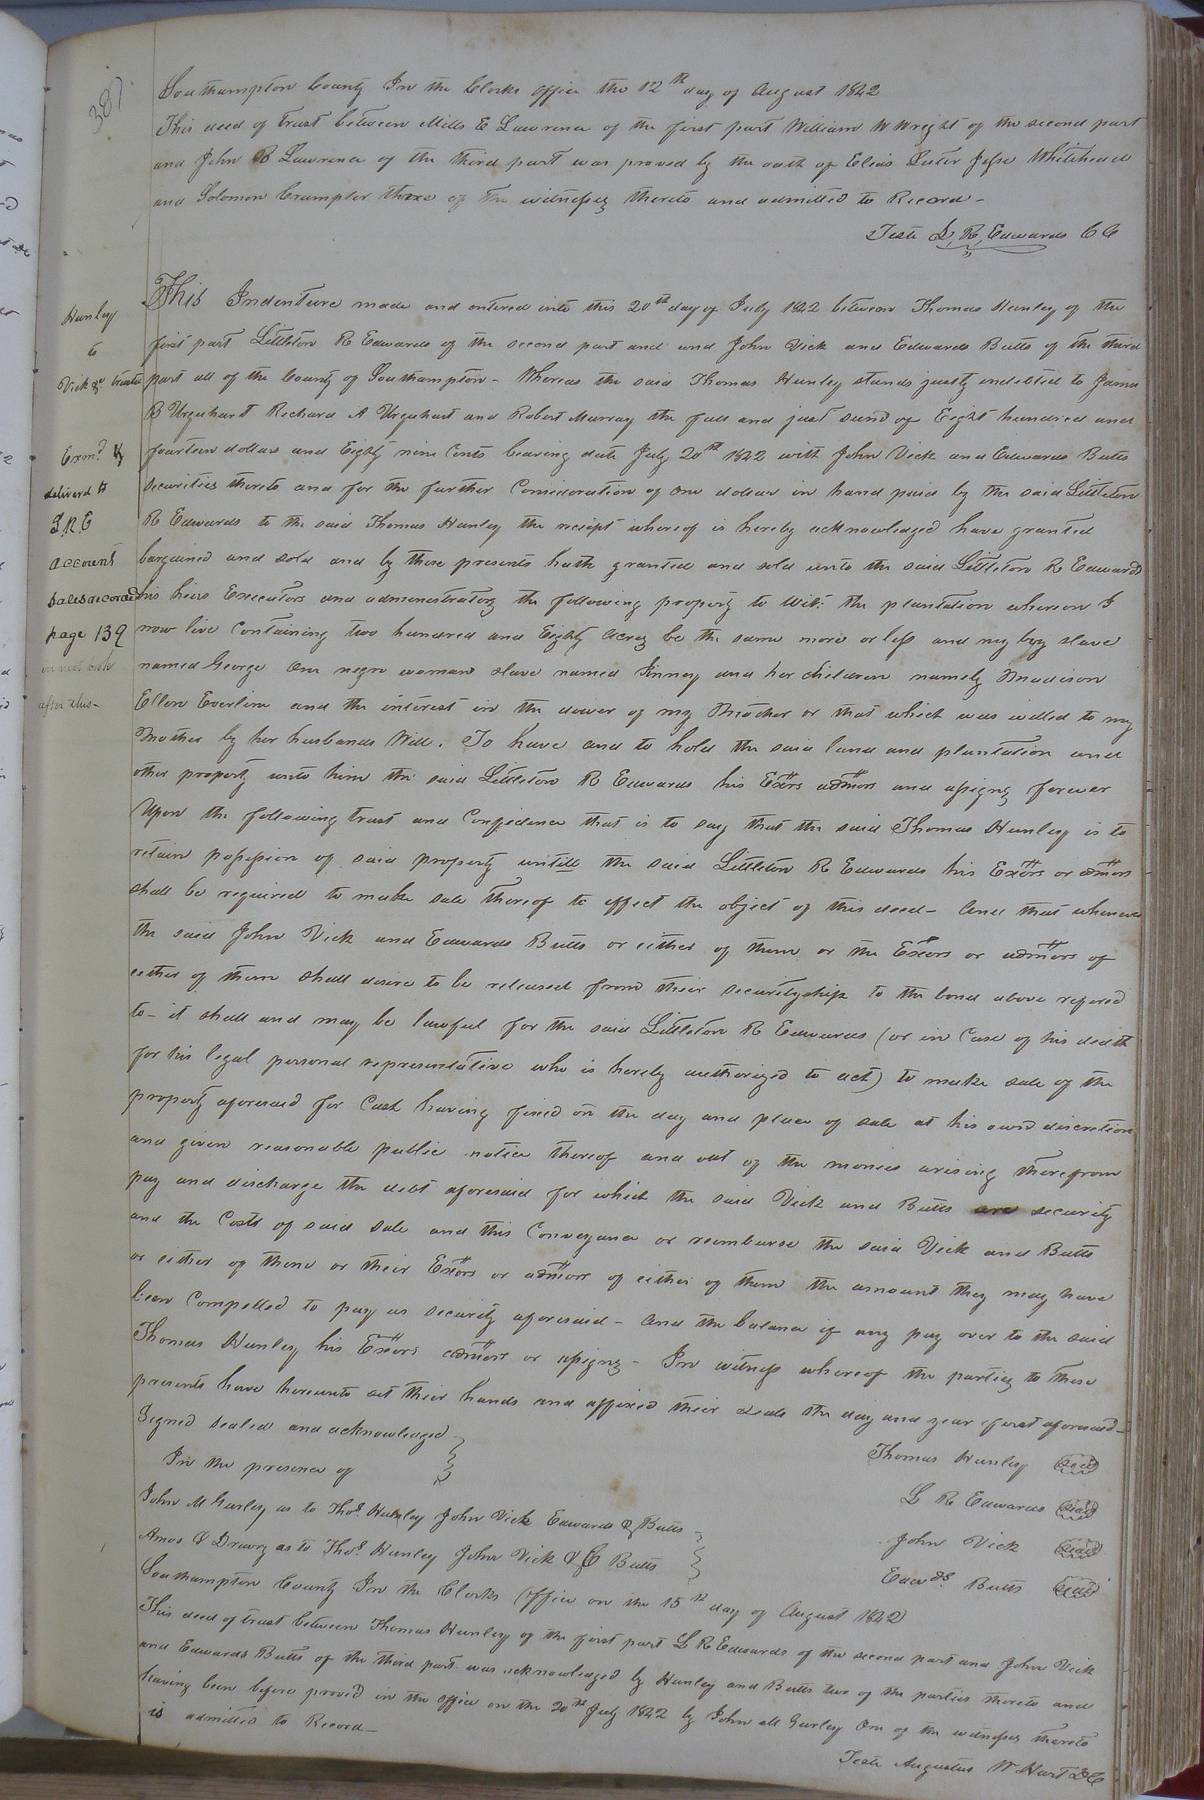 387
Southampton County In the Clerks office the 12th day of August 1842
This deed of trust between Mills E Lawrence of the first part William W Wright of the second part
and John B Lawrence of the third part was proved by the oath of Elias Luter Jesse Whitehead
and Solomon Crumpler three of the witnesses thereto and admitted to Record –
Teste L. R. Edwards CC
Hunley
to
Vick &c trustee
Exmd &
deliverd to
L.R.E
account
sales recorded
page 139
in next book
after this –
This Indenture made and entered into this 20th day of July 1842 between Thomas Hunley of the
first part Littleton R Edwards of the second part and and John Vick and Edwards Butts of the third
part all of the County of Southampton – Whereas the said Thomas Hunley stands justly indebted to James
B Urquhart Richard A Urquhart and Robert Murray the full and just sum of Eight hundred and
fourteen dollars and Eighty nine Cents bearing date July 20th 1842 with John Vick and Edwards Butts
securities thereto and for the further Consideration of one dollar in hand paid by the said Littleton
R Edwards to the said Thomas Hunley the receipt whereof is hereby acknowledged have granted
bargained and sold and by these presents hath granted and sold unto the said Littleton R Edwards
his heirs Executors and administrators the following property to Wit: the plantation whereon I
now live Containing two hundred and Eighty acres be the same more or less and my boy slave
named George One negro woman slave named Jinney and her children namely Madison
Ellen Everline and the interest in the dower of my Mother or that which was willed to my
Mother by her husbands Will. To have and to hold the said land and plantation and
other property unto him the said Littleton R Edwards his Exors admors and assigns forever
Upon the following trust and Confidence that is to say that the said Thomas Hunley is to
retain possession of said property untill the said Littleton R Edwards his Exors or admors
shall be required to make sale thereof to effect the object of this deed – And that whenever
the said John Vick and Edwards Butts or either of them or the Exors or admors of
either of them shall desire to be released from their securityship to the bond above refered
to – it shall and may be lawful for the said Littleton R Edwards (or in Case of his death
for his legal personal representative who is hereby authorized to act) to make sale of the
property aforesaid for Cash having fixed on the day and place of sale at his own discretion
and given reasonable public notice thereof and out of the monies arising therefrom
pay and discharge the debt aforesaid for which the said Vick and Butts are security
and the Costs of said sale and this Conveyance or reemburse the said Vick and Butts
or either of them or their Exors or admors of either of them the amount they may have
been Compelled to pay as security aforesaid – And the balance if any pay over to the said
Thomas Hunley his Exors admors or assigns – In witness whereof the parties to these
presents have hereunto set their hands and affixed their seals the day and year first aforesaid –
Signed sealed and acknowledged
In the presence of
Thomas Hunley seal
L R Edwards seal
John Vick seal
Edwds Butts seal
John M Gurley as to Thos. Hunley John Vick Edwards & Butts
Amos C Drewry as to Thos. Hunley John Vick & E Butts
Southampton County In the Clerks Office on the 15th day of August 1842
This deed of trust between Thomas Hunley of the first part L R Edwards of the second part and John Vick
and Edwards Butts of the third part was acknowledged by Hunley and Butts two of the parties thereto and
having been before proved in the office on the 20th July 1842 by John M Gurley One of the witnesses thereto
is admitted to Record –
Teste Augustus W Hart DC